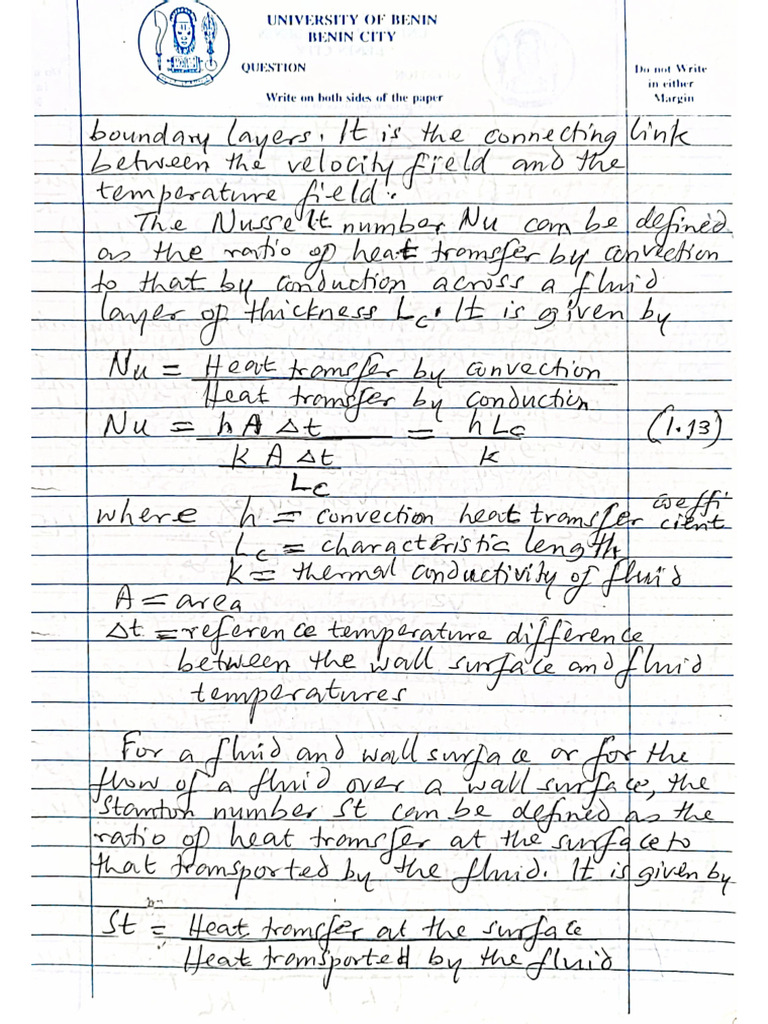 UNIVERSITY OF BENIN
BENIN CITY
QUESTION
Write on both sides of the paper
Do not Write
in either
Margin
boundary layers. It is the connecting link
between the velocity field and the
temperature field.
The Nusselt number Nu can be defined
as the ratio of heat transfer by convection
to that by conduction across a fluid
layer of thickness Lc. It is given by
Nu = Heat transfer by convection
Heat transfer by conduction
Nu = h A Δt = h Lc (1.13)
k A Δt k
Lc
where h = convection heat transfer coeffi
cient
Lc = characteristic length
k = thermal conductivity of fluid
A = area
Δt = reference temperature difference
between the wall surface and fluid
temperatures
For a fluid and wall surface or for the
flow of a fluid over a wall surface, the
Stanton number St can be defined as the
ratio of heat transfer at the surface to
that transported by the fluid. It is given by
St = Heat transfer at the surface
Heat transported by the fluid